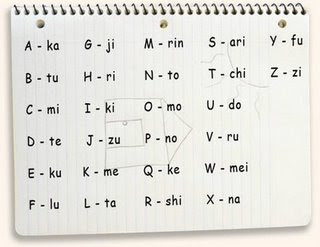 A - ka G - ji M - rin S - ari Y - fu
B - tu H - ri N - to T - chi Z - zi
C - mi I - ki O - mo U - do
D - te J - zu P - no V - ru
E - ku K - me Q - ke W - mei
F - lu L - ta R - shi X - na